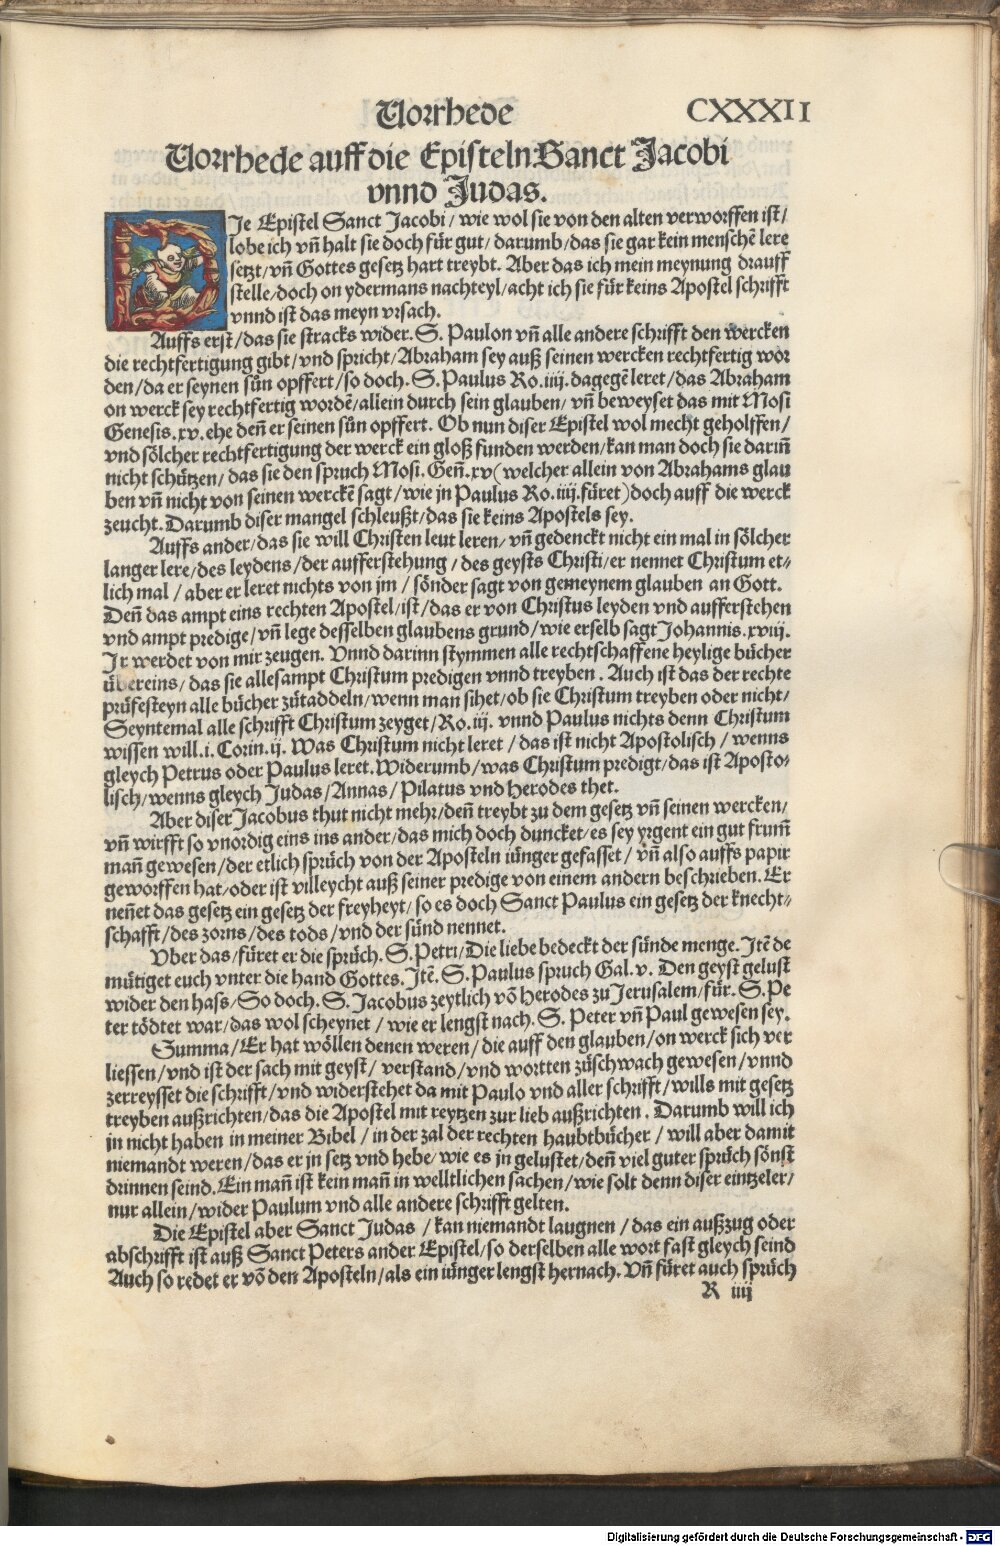 Vorrhede CXXXII
Vorrhede auff die Episteln Sanct Jacobi
vnnd Judas.
DIe Epistel Sanct Jacobi / wie wol sie von den alten verworffen ist /
lobe ich vñ halt sie doch für gut / darumb / das sie gar kein menschē lere
setzt / vñ Gottes gesetz hart treybt. Aber das ich mein meynung drauff
stelle / doch on ydermans nachteyl / acht ich sie für keins Apostel schrifft
vnnd ist das meyn vrsach.
Auffs erst / das sie stracks wider. S. Paulon vñ alle andere schrifft den wercken
die rechtfertigung gibt / vnd spricht / Abraham sey auß seinen wercken rechtfertig wor
den / da er seynen sün opffert / so doch. S. Paulus Ro. iiij. dagegē leret / das Abraham
on werck sey rechtfertig wordē / allein durch sein glauben / vñ beweyset das mit Mosi
Genesis. xv. ehe deñ er seinen sün opffert. Ob nun diser Epistel wol mecht geholffen /
vnd sölcher rechtfertigung der werck ein gloß funden werden / kan man doch sie dariñ
nicht schützen / das sie den spruch Mosi. Geñ. xv (welcher allein von Abrahams glau
ben vñ nicht von seinen werckē sagt / wie jn Paulus Ro. iiij. füret) doch auff die werck
zeucht. Darumb diser mangel schleußt / das sie keins Apostels sey.
Auffs ander / das sie will Christen leut leren / vñ gedenckt nicht ein mal in sölcher
langer lere / des leydens / der aufferstehung / des geysts Christi / er nennet Christum et⸗
lich mal / aber er leret nichts von jm / sönder sagt von gemeynem glauben an Gott.
Deñ das ampt eins rechten Apostel / ist / das er von Christus leyden vnd aufferstehen
vnd ampt predige / vñ lege desselben glaubens grund / wie er selb sagt Johannis. xviij.
Jr werdet von mir zeugen. Vnnd darinn stymmen alle rechtschaffene heylige bücher
übereins / das sie allesampt Christum predigen vnnd treyben. Auch ist das der rechte
prüfesteyn alle bücher zütaddeln / wenn man sihet / ob sie Christum treyben oder nicht /
Seyntemal alle schrifft Christum zeyget / Ro. iij. vnnd Paulus nichts denn Christum
wissen will. i. Corin. ij. Was Christum nicht leret / das ist nicht Apostolisch / wenns
gleych Petrus oder Paulus leret. Widerumb / was Christum predigt / das ist Aposto⸗
lisch / wenns gleych Judas / Annas / Pilatus vnd Herodes thet.
Aber diser Jacobus thut nicht mehr / deñ treybt zu dem gesetz vñ seinen wercken /
vñ wirfft so vnordig eins ins ander / das mich doch duncket / es sey yrgent ein gut frum̃
mañ gewesen / der etlich sprüch von der Aposteln iünger gefasset / vñ also auffs papir
geworffen hat / oder ist villeycht auß seiner predige von einem andern beschrieben. Er
neñet das gesetz ein gesetz der freyheyt / so es doch Sanct Paulus ein gesetz der knecht⸗
schafft / des zorns / des tods / vnd der sünd nennet.
Vber das / füret er die sprüch. S. Petri / Die liebe bedeckt der sünde menge. Jtē de
mütiget euch vnter die hand Gottes. Jtē. S. Paulus spruch Gal. v. Den geyst gelust
wider den hass / So doch. S. Jacobus zeytlich vō Herodes zu Jerusalem / für. S. Pe
ter tödtet war / das wol scheynet / wie er lengst nach. S. Peter vñ Paul gewesen sey.
Summa / Er hat wöllen denen weren / die auff den glauben / on werck sich ver
liessen / vnd ist der sach mit geyst / verstand / vnd wortten züschwach gewesen / vnnd
zerreysset die schrifft / vnd widerstehet da mit Paulo vnd aller schrifft / wills mit gesetz
treyben außrichten / das die Apostel mit reytzen zur lieb außrichten. Darumb will ich
jn nicht haben in meiner Bibel / in der zal der rechten haubtbücher / will aber damit
niemandt weren / das er jn setz vnd hebe / wie es jn gelustet / deñ viel guter sprüch sönst
drinnen seind. Ein mañ ist kein mañ in welltlichen sachen / wie solt denn diser eintzeler /
nur allein / wider Paulum vnd alle andere schrifft gelten.
Die Epistel aber Sanct Judas / kan niemandt laugnen / das ein außzug oder
abschrifft ist auß Sanct Peters ander Epistel / so derselben alle wort fast gleych seind
Auch so redet er vō den Aposteln / als ein iünger lengst hernach. Vñ füret auch sprüch
R iiij
Digitalisierung gefördert durch die Deutsche Forschungsgemeinschaft - DFG